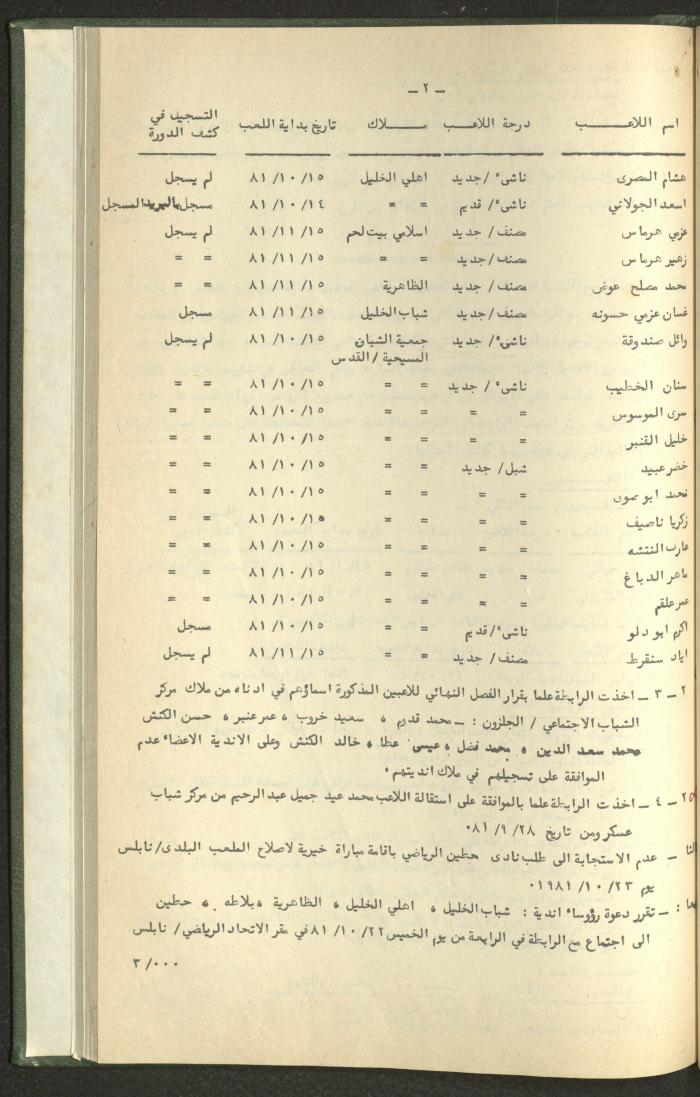 ـ ٢ ـ
اسم اللاعـــــــب درجة اللاعـــب مـــــــلاك تاريخ بداية اللعب التسجيل في كشف الدورة
هشام المصرى ناشىء /جديد اهلي الخليل ٨١/١٠/١٥ لم يسجل
اسعد الجولاني ناشىء/ قديم = = ٨١/١٠/١٤ مسجل بالبريد المسجل
عزمي هرماس مصنف/ جديد اسلامي بيت لحم ٨١/١١/١٥ لم يسجل
زهير هرماس مصنف/ جديد = = ٨١/١١/١٥ = =
محمد مصلح عوض مصنف/ جديد الظاهرية ٨١/١١/١٥ = =
غسان عزمي حسونه مصنف/ جديد شباب الخليل ٨١/١١/١٥ مسجل
وائل صندوقة ناشىء/ جديد جمعية الشبان ٨١/١٠/١٥ لم يسجل
المسيحية /القدس
سنان الخطيب ناشىء / جديد = = ٨١/١٠/١٥ = =
سرى الموسوس = = = = ٨١/١٠/١٥ = =
خليل القنبر = = = = ٨١/١٠/١٥ = =
خضر عبيد شبل/ جديد = = ٨١/١٠/١٥ = =
محمد ابو = = = = ٨١/١٠/١٥ = =
زكريا ناصيف = = = = ٨١/١٠/١٥ = =
النتشه = = = = ٨١/١٠/١٥ = =
ماهر الدباغ = = = = ٨١/١٠/١٥ = =
عمر علقم = = = = ٨١/١٠/١٥ = =
اكرم ابو دلو ناشىء/قديم = = ٨١/١٠/١٥ مسجل
اياد سنقرط مصنف/ جديد = = ٨١/١١/١٥ لم يسجل
٢ ـ ٣ ـ اخذت الرابطة علما بقرار الفصل النهائي للاعبين المذكورة اسماؤهم في ادناه من ملاك مركز
الشباب الاجتماعي / الجلزون : ـ محمد قدوم ، سعيد خروب ، عمر عنبر ، حسن الكنش
محمد سعد الدين ، محمد فضل ، عيسى عطا ، خالد الكنش وعلى الاندية الاعضاء عدم
الموافقة على تسجيلهم في ملاك انديتهم .
٢ ـ ٤ ـ اخذت الرابطة علما بالموافقة على استقالة اللاعب محمد عيد جميل عبد الرحيم من مركز شباب
عسكر ومن تاريخ ٢٨/ ٩/ ٨١.
ـ عدم الاستجابة الى طلب نادى حطين الرياضي باقامة مباراة خيرية لاصلاح الملعب البلدى/ نابلس
يوم ٢٣/ ١٠/ ١٩٨١.
: ـ تقرر دعوة رؤوساء اندية : شباب الخليل ، اهلي الخليل ، الظاهرية ، بلاطه ، حطين
الى اجتماع مع الرابطة في الرابعة من يوم الخميس ٢٢/ ١٠/ ٨١ في مقر الاتحاد الرياضي/ نابلس
٣/...